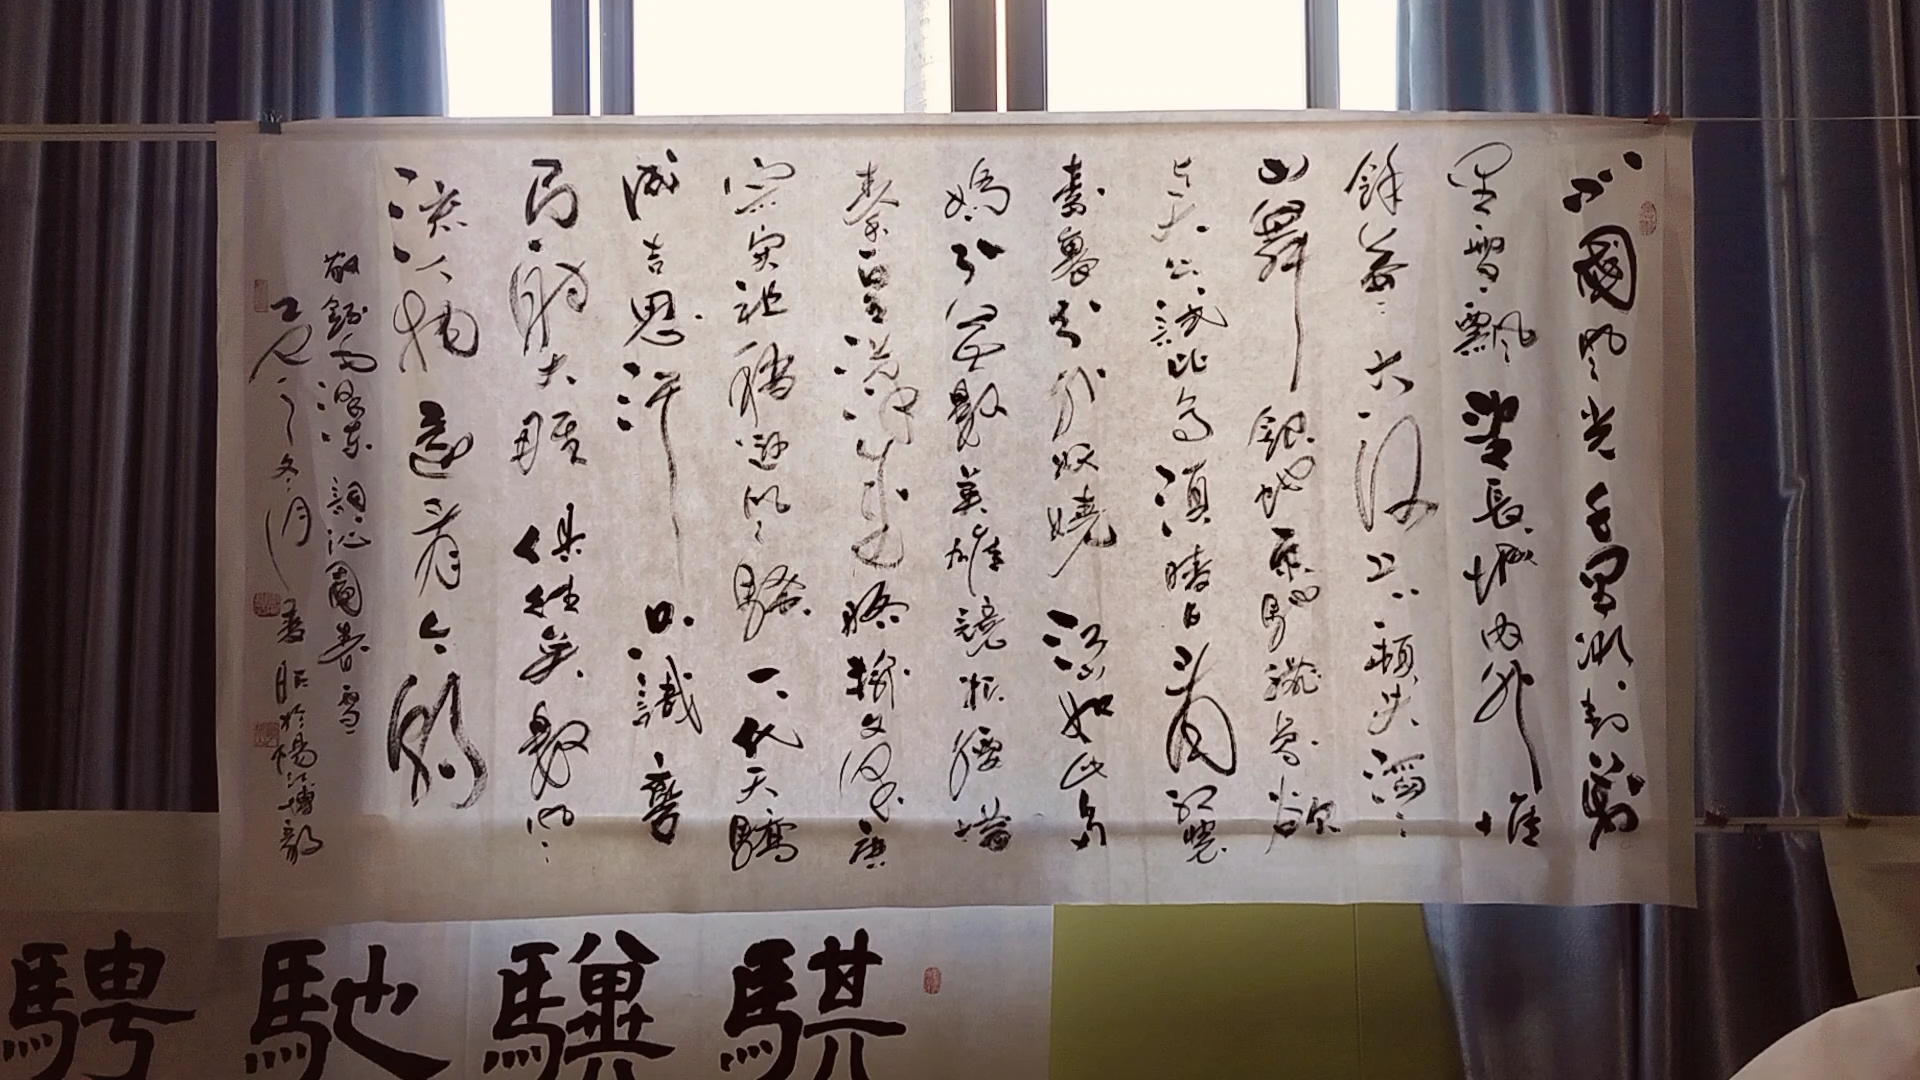 北國風光千里冰封萬
里雪飄望長城內外惟
餘莽莽大河上下頓失滔滔
山舞銀蛇原馳蠟象欲
与天公試比高須晴日看紅裝
素裹分外妖嬈江山如此多
嬌引無數英雄競折腰惜
秦皇漢武略輸文采唐
宗宋祖稍遜風騷一代天驕
成吉思汗只識彎
弓射大雕俱往矣數風
流人物還看今朝
敬錄毛澤東詞沁園春雪
冬月
騏驥馳騁